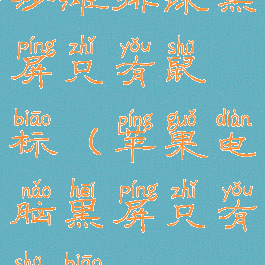 黑
píng zhǐ yǒu shǔ
屏只有鼠
biāo píng guǒ diàn
标(苹果电
nǎo hēi píng zhǐ yǒu
脑黑屏只有
shǔ biāo